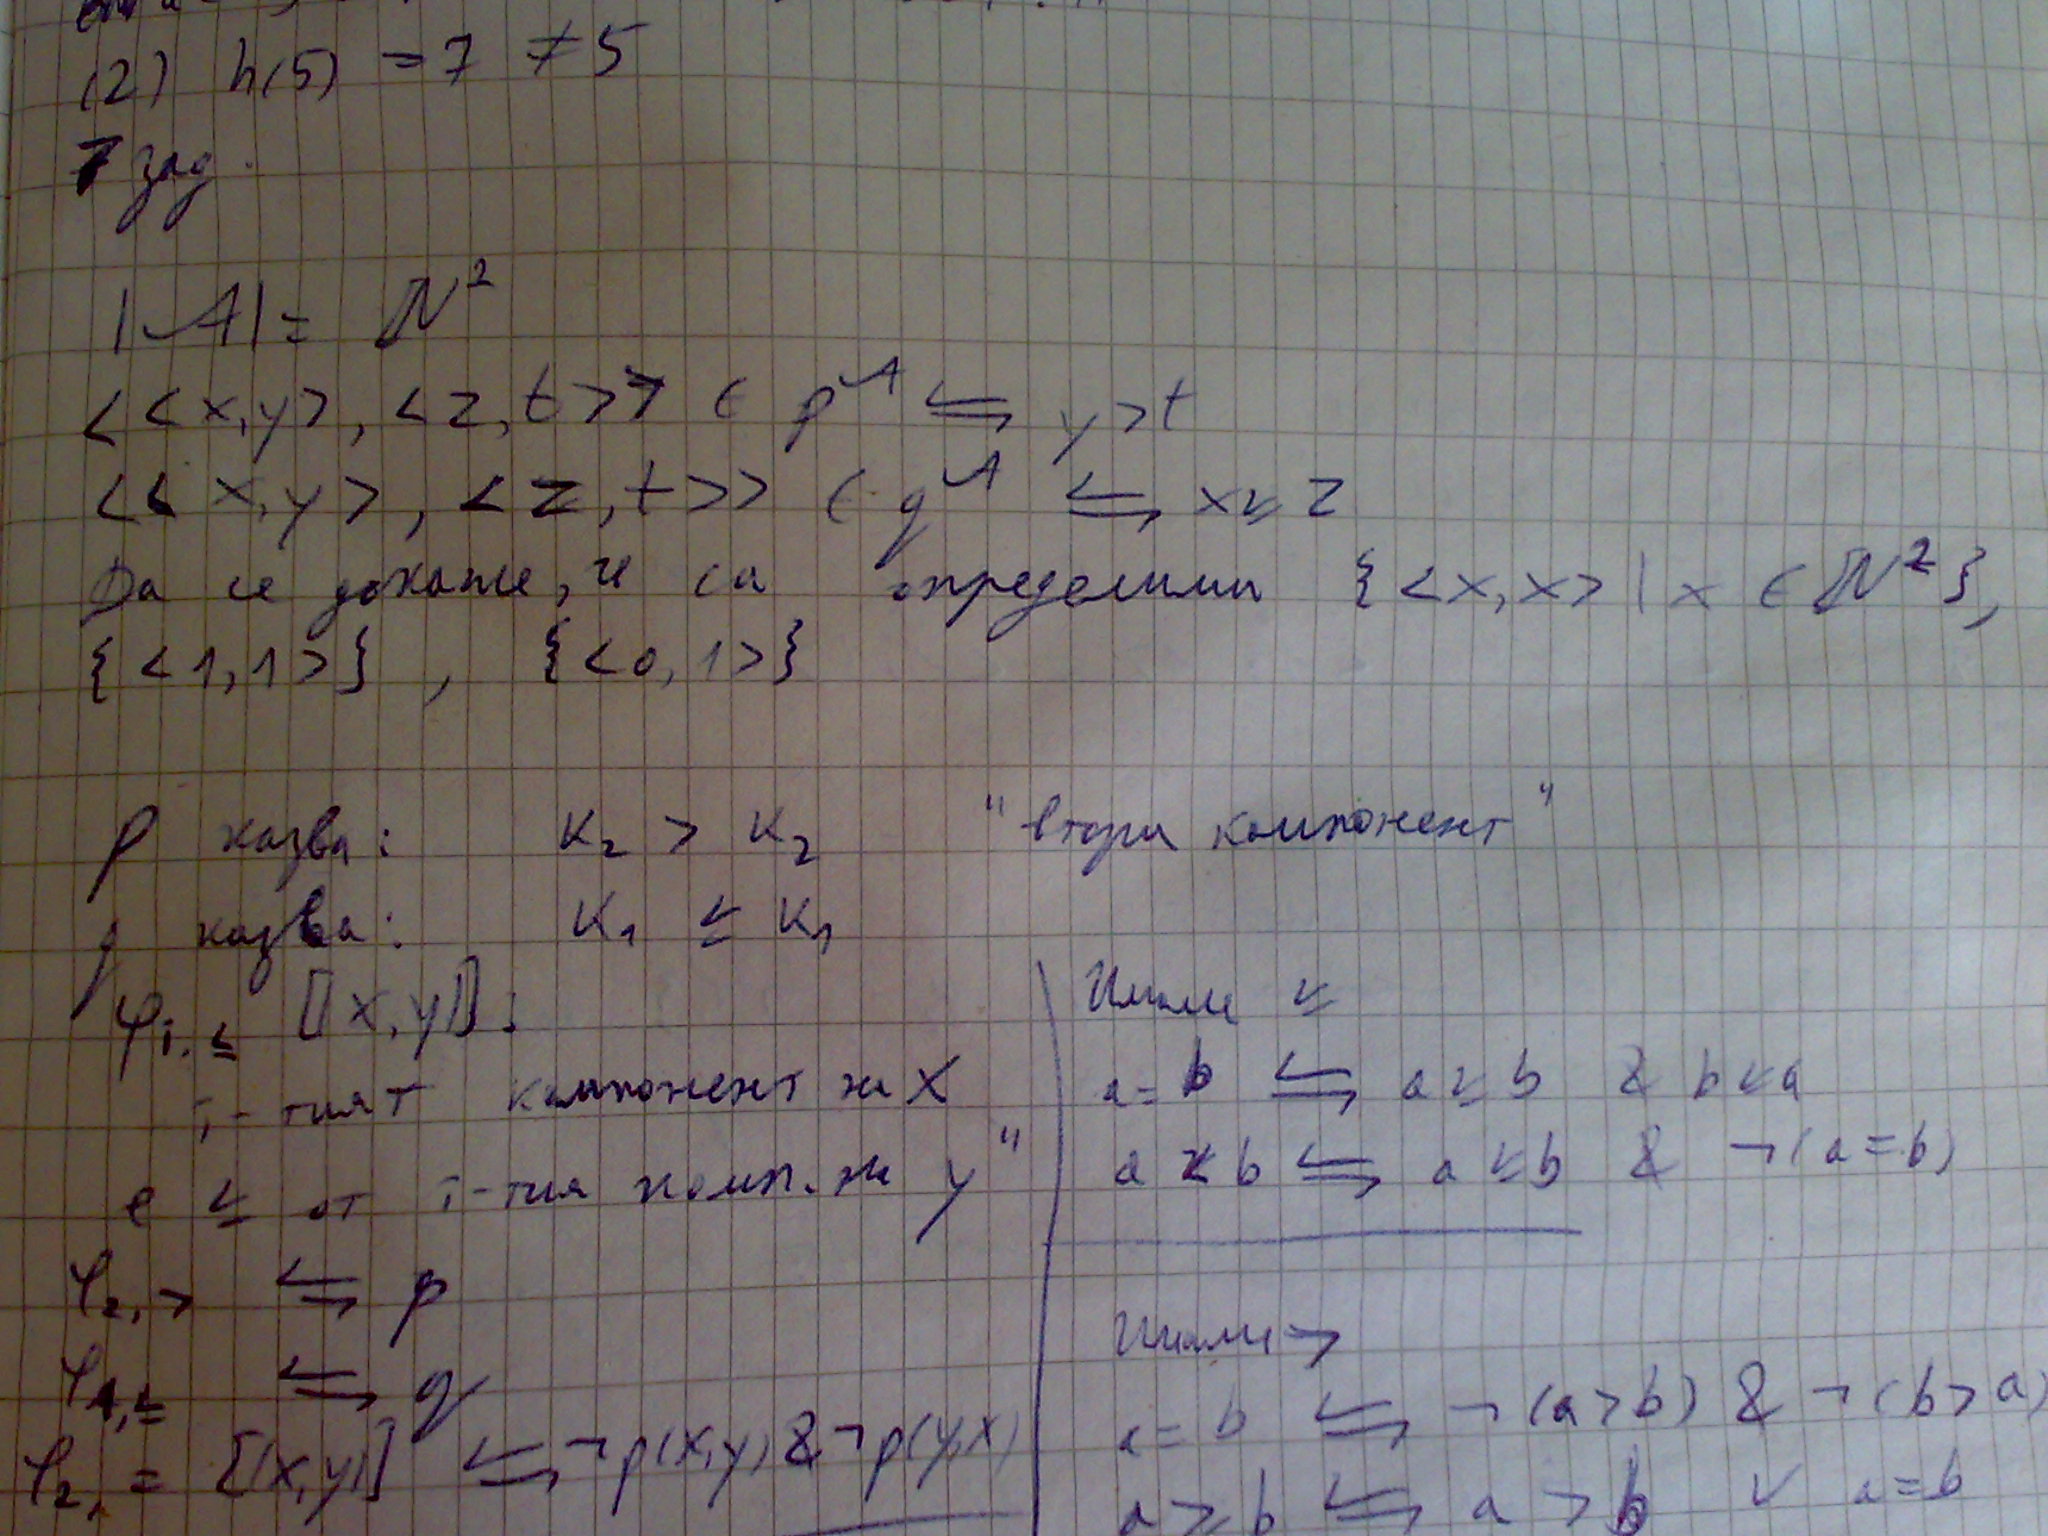 (2) h(5) = 7 ≠ 5
7 зад.
|𝒜| = ℕ²
<<x,y>, <z,t>> ∈ p^𝒜 ⇆ y > t
<<x,y>, <z,t>> ∈ q^𝒜 ⇆ x ≤ z
Да се докаже, че са определими {<x,x> | x ∈ ℕ²},
{<1,1>}, {<0,1>}
p казва: K₂ > K₂ "втори компонент"
q казва: K₁ ≤ K₁
φ_{i,≤} [[x,y]]:
i-тият компонент на x
е ≤ от i-тия комп. на y"
φ_{2,>} ⇆ p
φ_{1,≤} ⇆ q
φ_{2,=} [[x,y]] ⇆ ¬p(x,y) & ¬p(y,x)
Имаме ≤
a = b ⇆ a ≤ b & b ≤ a
a < b ⇆ a ≤ b & ¬(a = b)
Имаме >
a = b ⇆ ¬(a > b) & ¬(b > a)
a ≥ b ⇆ a > b ∨ a = b